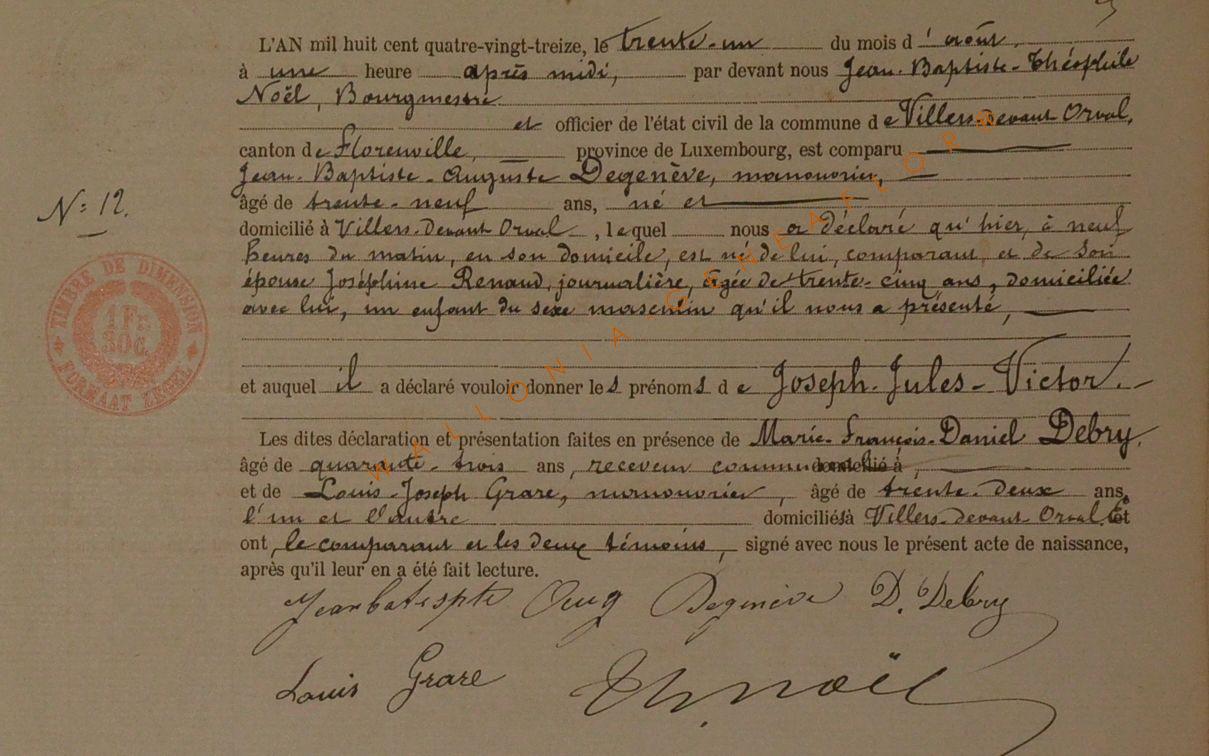 L'AN mil huit cent quatre-vingt-treize, le trente-un du mois d'août
à une heure après midi, par devant nous Jean-Baptiste-Théophile
Noël, Bourgmestre
et officier de l'état civil de la commune de Villers-devant Orval,
canton de Florenville, province de Luxembourg, est comparu
Jean-Baptiste-Auguste Degenève, manouvrier,
N: 12.
âgé de trente-neuf ans, né et
domicilié à Villers-Devant Orval, lequel nous a déclaré qu'hier, à neuf
heures du matin, en son domicile, est né de lui, comparant, et de son
épouse Joséphine Renaud, journalière, âgée de trente-cinq ans, domiciliée
avec lui, un enfant du sexe masculin qu'il nous a présenté,
TIMBRE DE DIMENSION
1 FR:
30C.
FORMAAT ZEGEL
et auquel il a déclaré vouloir donner les prénoms de Joseph-Jules-Victor.
Les dites déclaration et présentation faites en présence de Marie-François-Daniel Debry,
âgé de quarante-trois ans, receveur communal domicilié à,
et de Louis-Joseph Grare, manouvrier, âgé de trente-deux ans,
l'un et l'autre domiciliés à Villers-devant-Orval, et
ont, le comparant et les deux témoins, signé avec nous le présent acte de naissance,
après qu'il leur en a été fait lecture.
Jeanbatispte Aug Degenève D. Debry
Louis Grare Th. Noël
WALLONIA GENEAFLORE